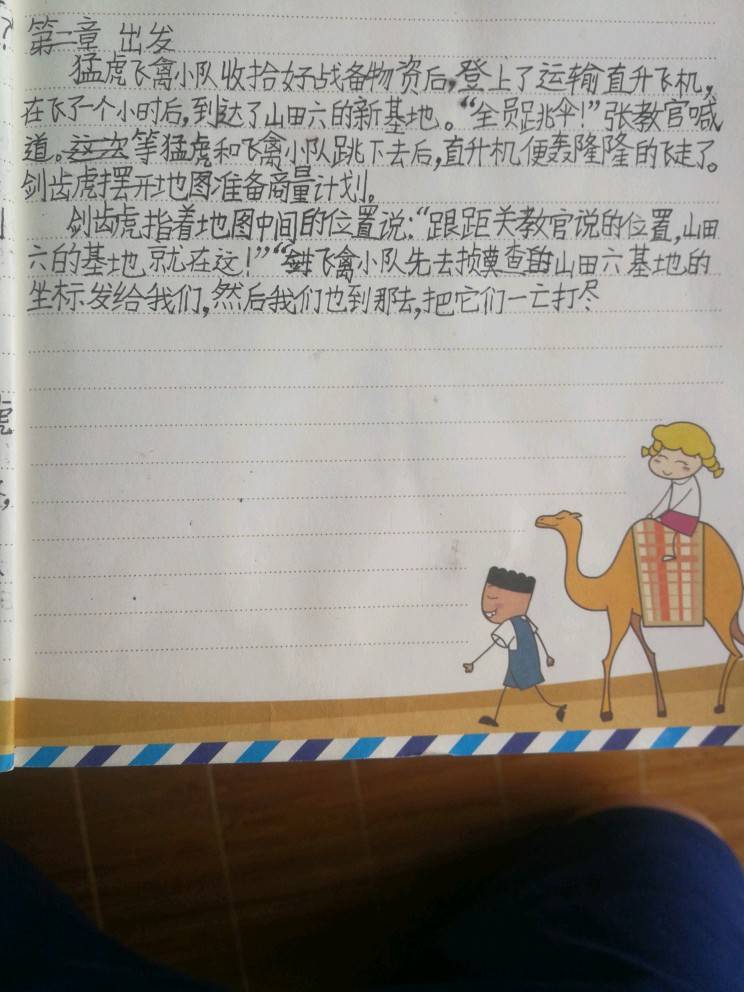 第二章 出发
猛虎飞禽小队收拾好战备物资后,登上了运输直升飞机,
在飞了一个小时后,到达了山田六的新基地。“全员跳伞!”张教官喊
道。这次等猛虎和飞禽小队跳下去后,直升机便轰隆隆的飞走了。
剑齿虎摆开地图准备商量计划。
剑齿虎指着地图中间的位置说:“跟距关教官说的位置,山田
六的基地就在这!”“飞禽小队先去摸查的山田六基地的
坐标发给我们,然后我们也到那去,把它们一亡打尽
虎